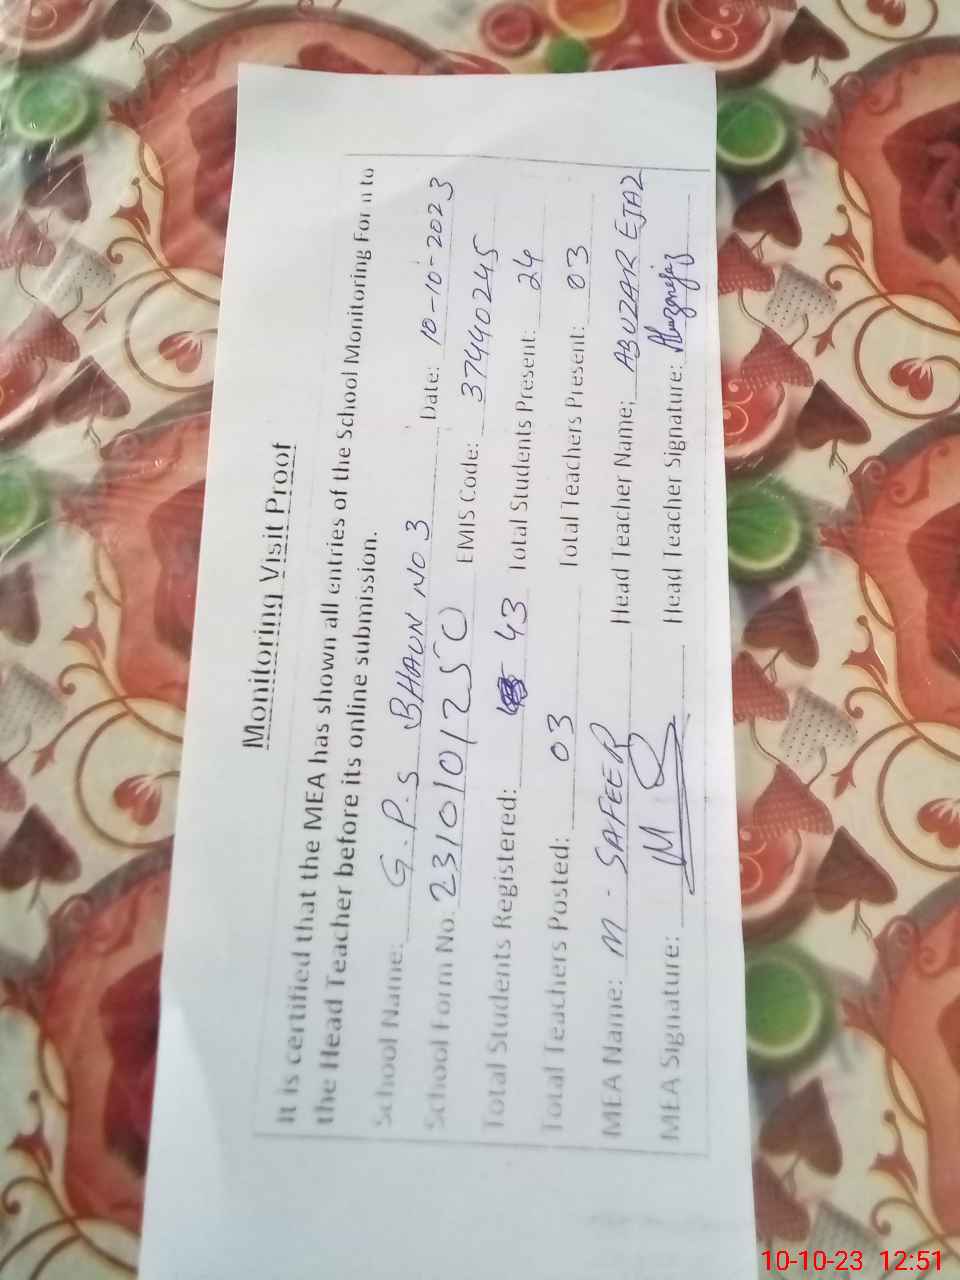 Monitoring Visit Proof
It is certified that the MEA has shown all entries of the School Monitoring Form to
the Head Teacher before its online submission.
School Name: G.P.S BHAUN NO 3 Date: 10-10-2023
School Form No. 2310101250 EMIS Code: 37440245
Total Students Registered: 43 Total Students Present: 24
Total Teachers Posted: 03 Total Teachers Present: 03
MEA Name: M. SAFEER Head Teacher Name: ABUZAR EJAZ
MEA Signature: Head Teacher Signature: Abuzarejaz
10-10-23 12:51